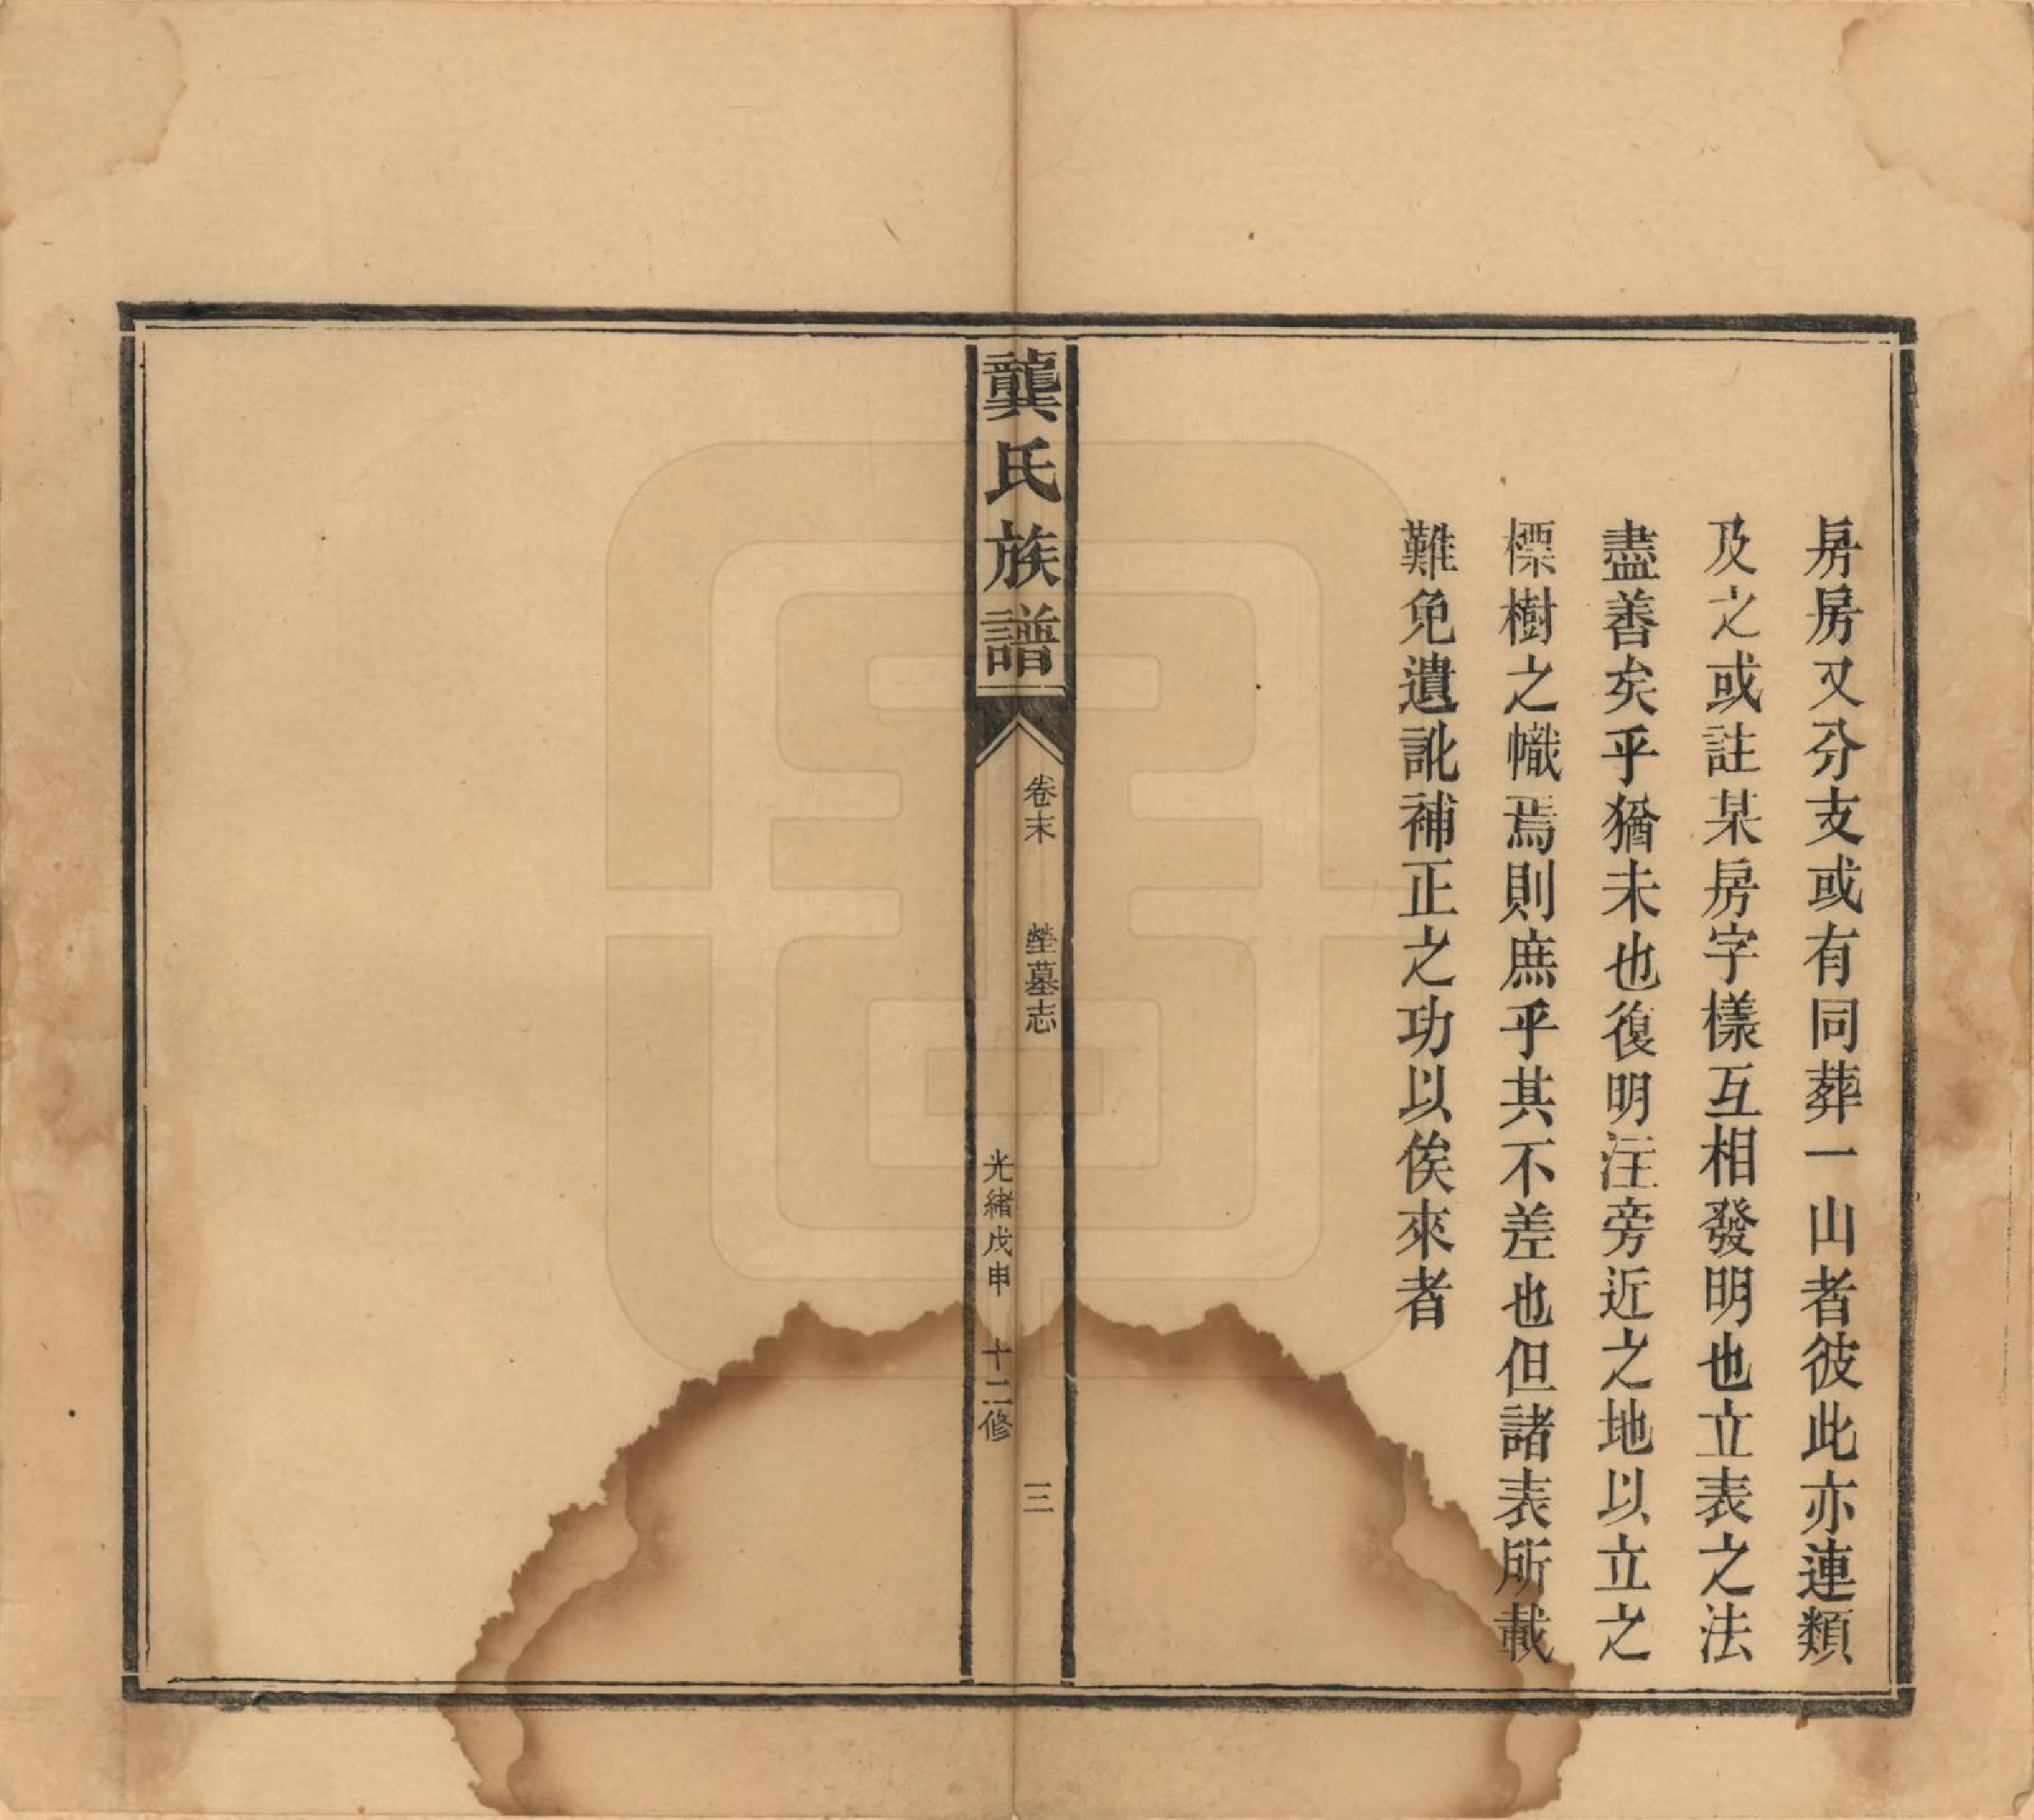 房房又分支或有同葬一山者彼此亦連類
及之或註某房字樣互相發明也立表之法
盡善矣乎猶未也復明注旁近之地以立之
標樹之幟焉則庶乎其不差也但諸表所載
難免遺訛補正之功以俟來者
龔氏族譜
卷末
塋墓志
三
光緒戊申
十二修